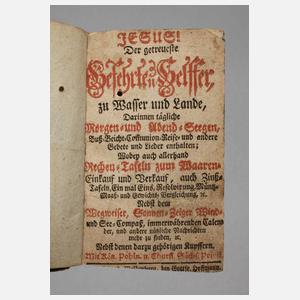 JESUS!
Der getreueste
Gefehrte und Helffer,
zu Wasser und Lande,
Darinnen tägliche
Morgen- und Abend-Seegen,
Buß-Beicht-Communion-Reise- und andere
Gebete und Lieder enthalten;
Wobey auch allerhand
Rechen-Tafeln zum Waaren-
Einkauf und Verkauf, auch Zinß-
Tafeln, Ein mal Eins, Resolvirung, Müntz-
Maaß- und Gewichts-Vergleichung, ꝛc.
Nebst dem
Wegweiser, Sonnen-Zeiger Wind-
und See-Compaß, immerwährenden Calen-
der, und andere nützliche Nachrichten
mehr zu finden, ꝛc.
Nebst denen darzu gehörigen Kupffern.
Mit Kön. Pohln. u. Churfl. Sächs. Privil.
bey Gottfr. Hoffmann.